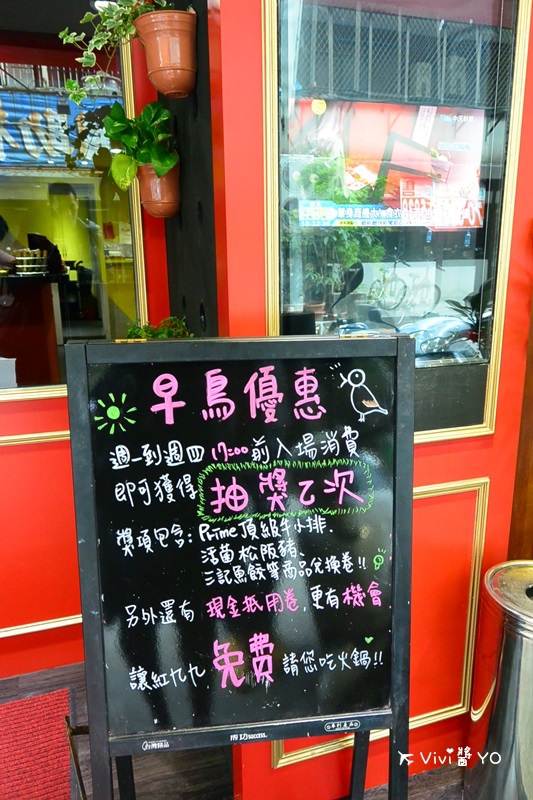 早鳥優惠
週一到週四 17:00前入場消費
即可獲得 抽獎乙次
獎項包含: Prime頂級牛小排、
活菌松阪豬、
三記魚餃等商品兌換卷!!
另外還有 現金抵用卷,更有機會
讓紅九九 免費 請您吃火鍋!!
台灣精品 成功success. 專利產品
Vivi醬 YO